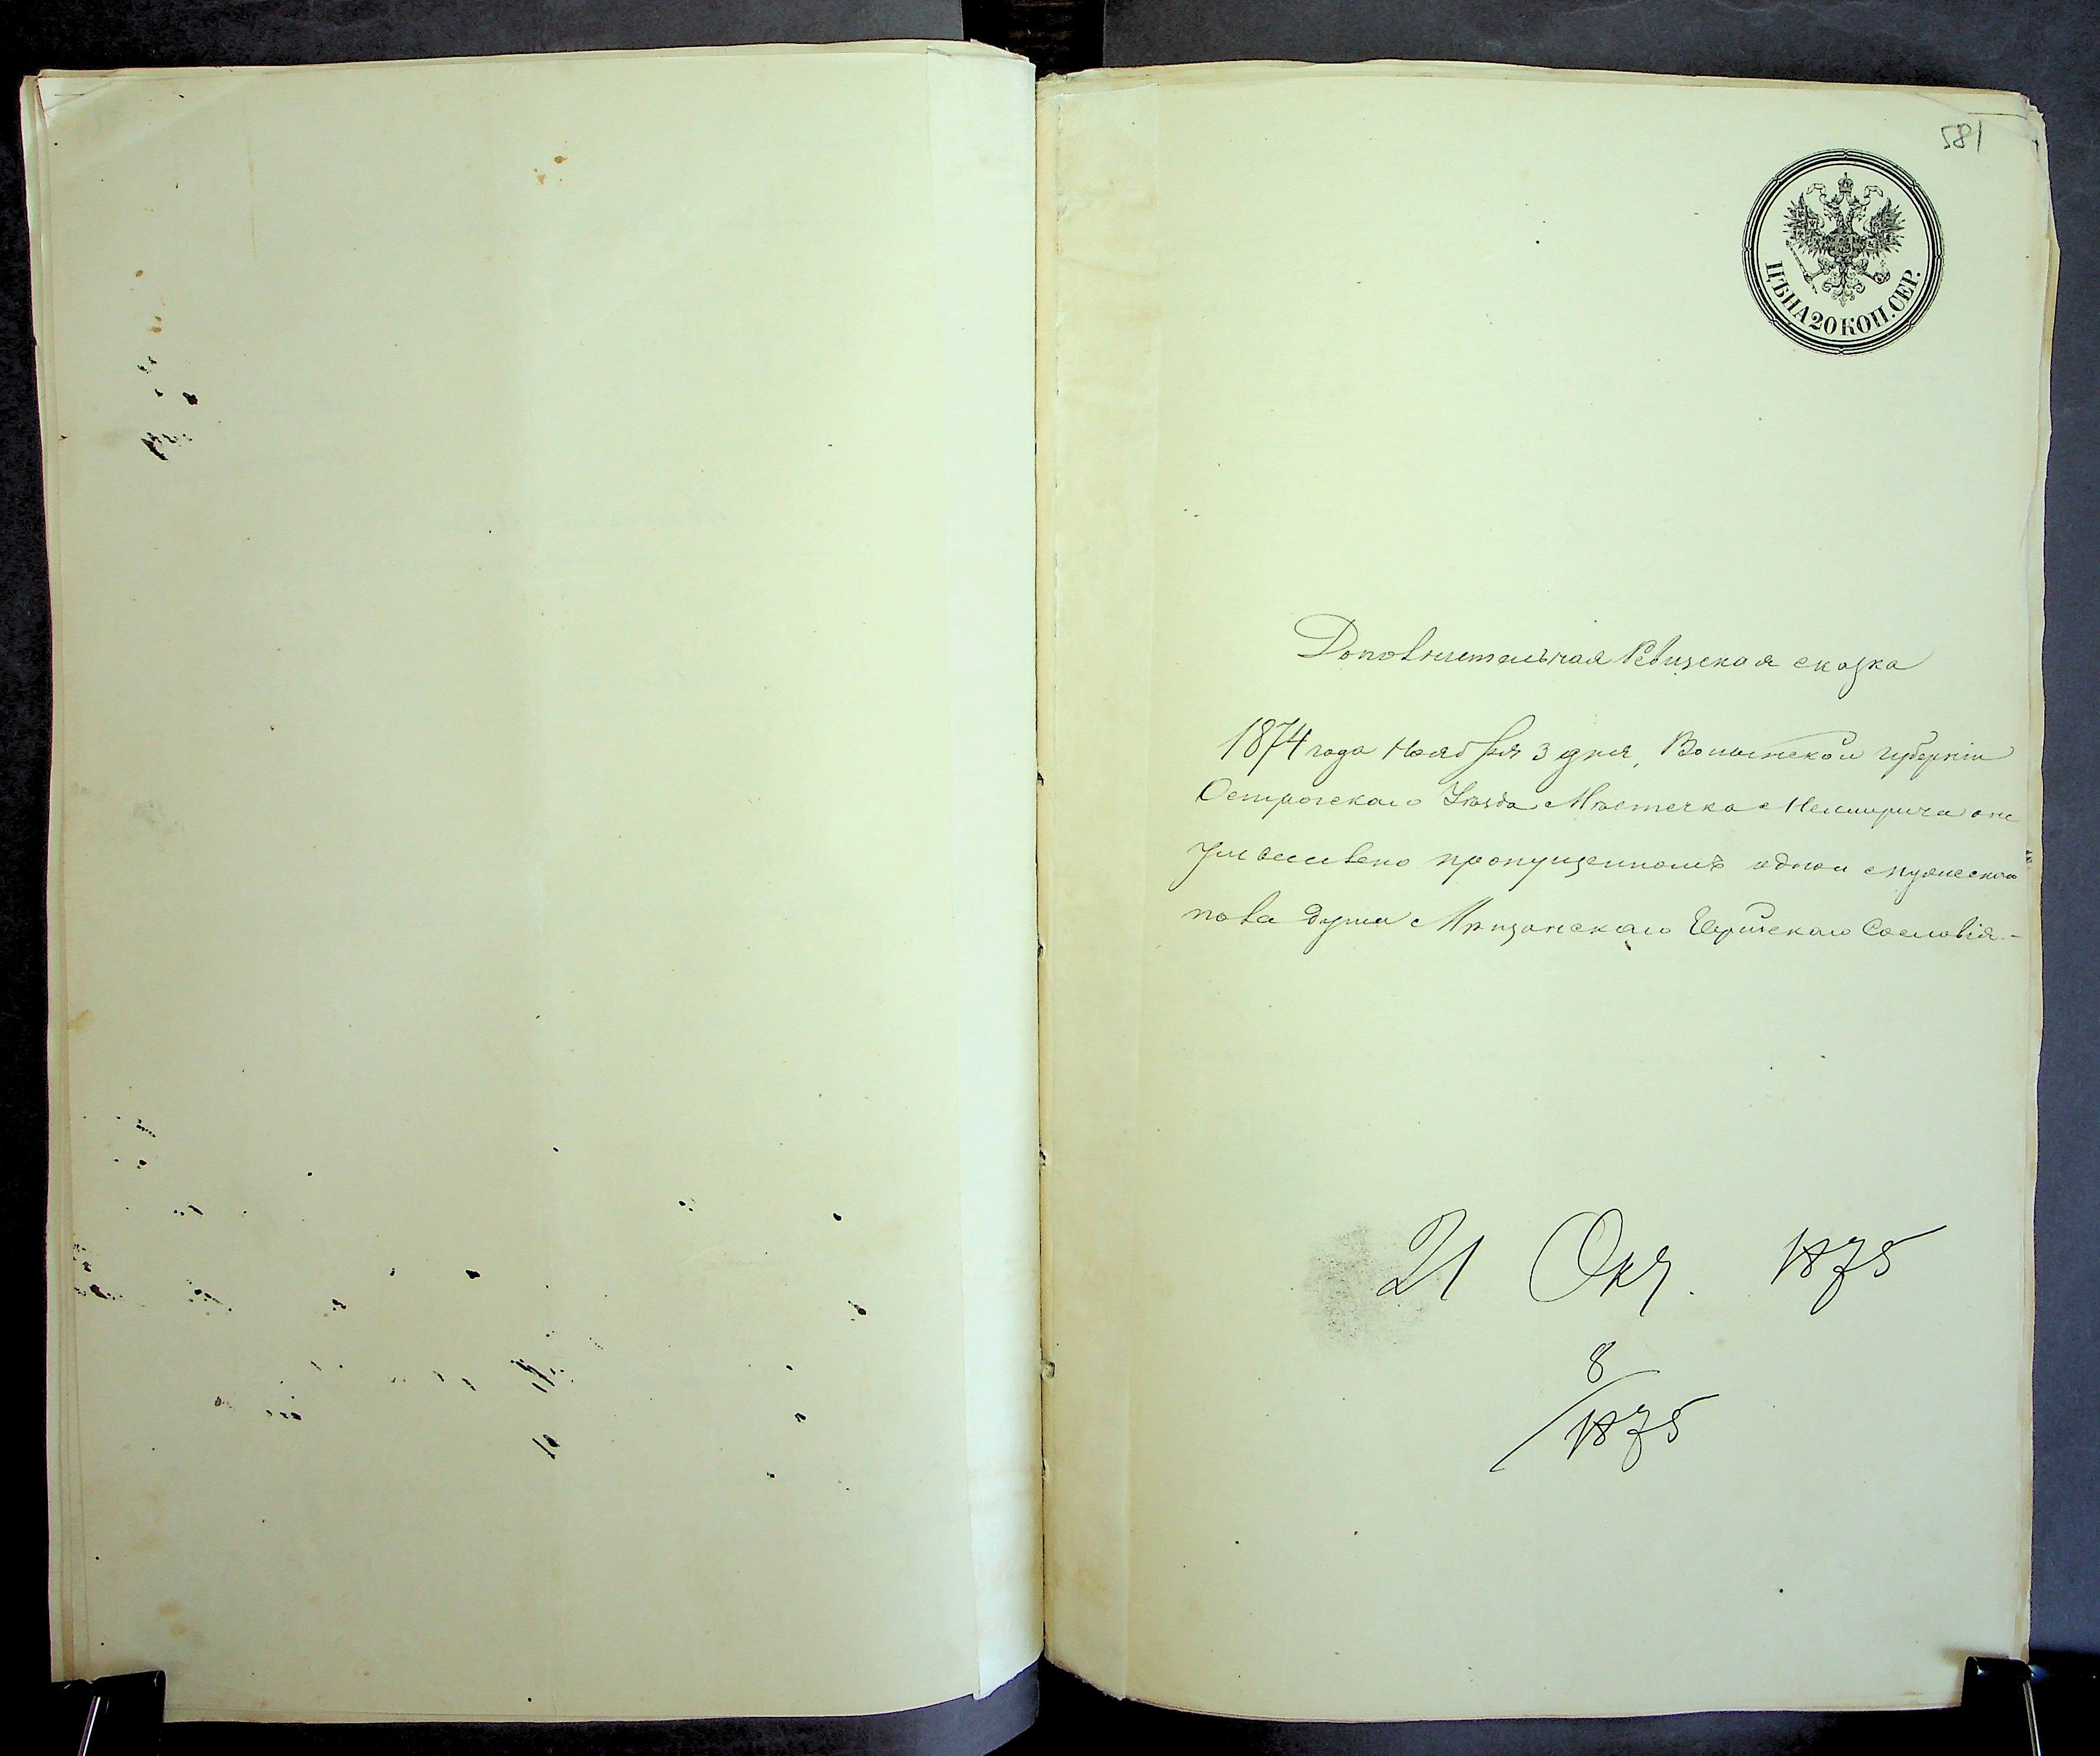 581
ЦѢНА 20 КОП. СЕР.
Дополнительная Ревизская сказка
1874 года Ноября 3 дня, Волынской губерніи
Острогского Уѣзда Мѣстечка
пропущенномъ одной
пола душа Мѣщанскаго Еврейскаго Сословія.-
21 Окт. 1875
8
1875